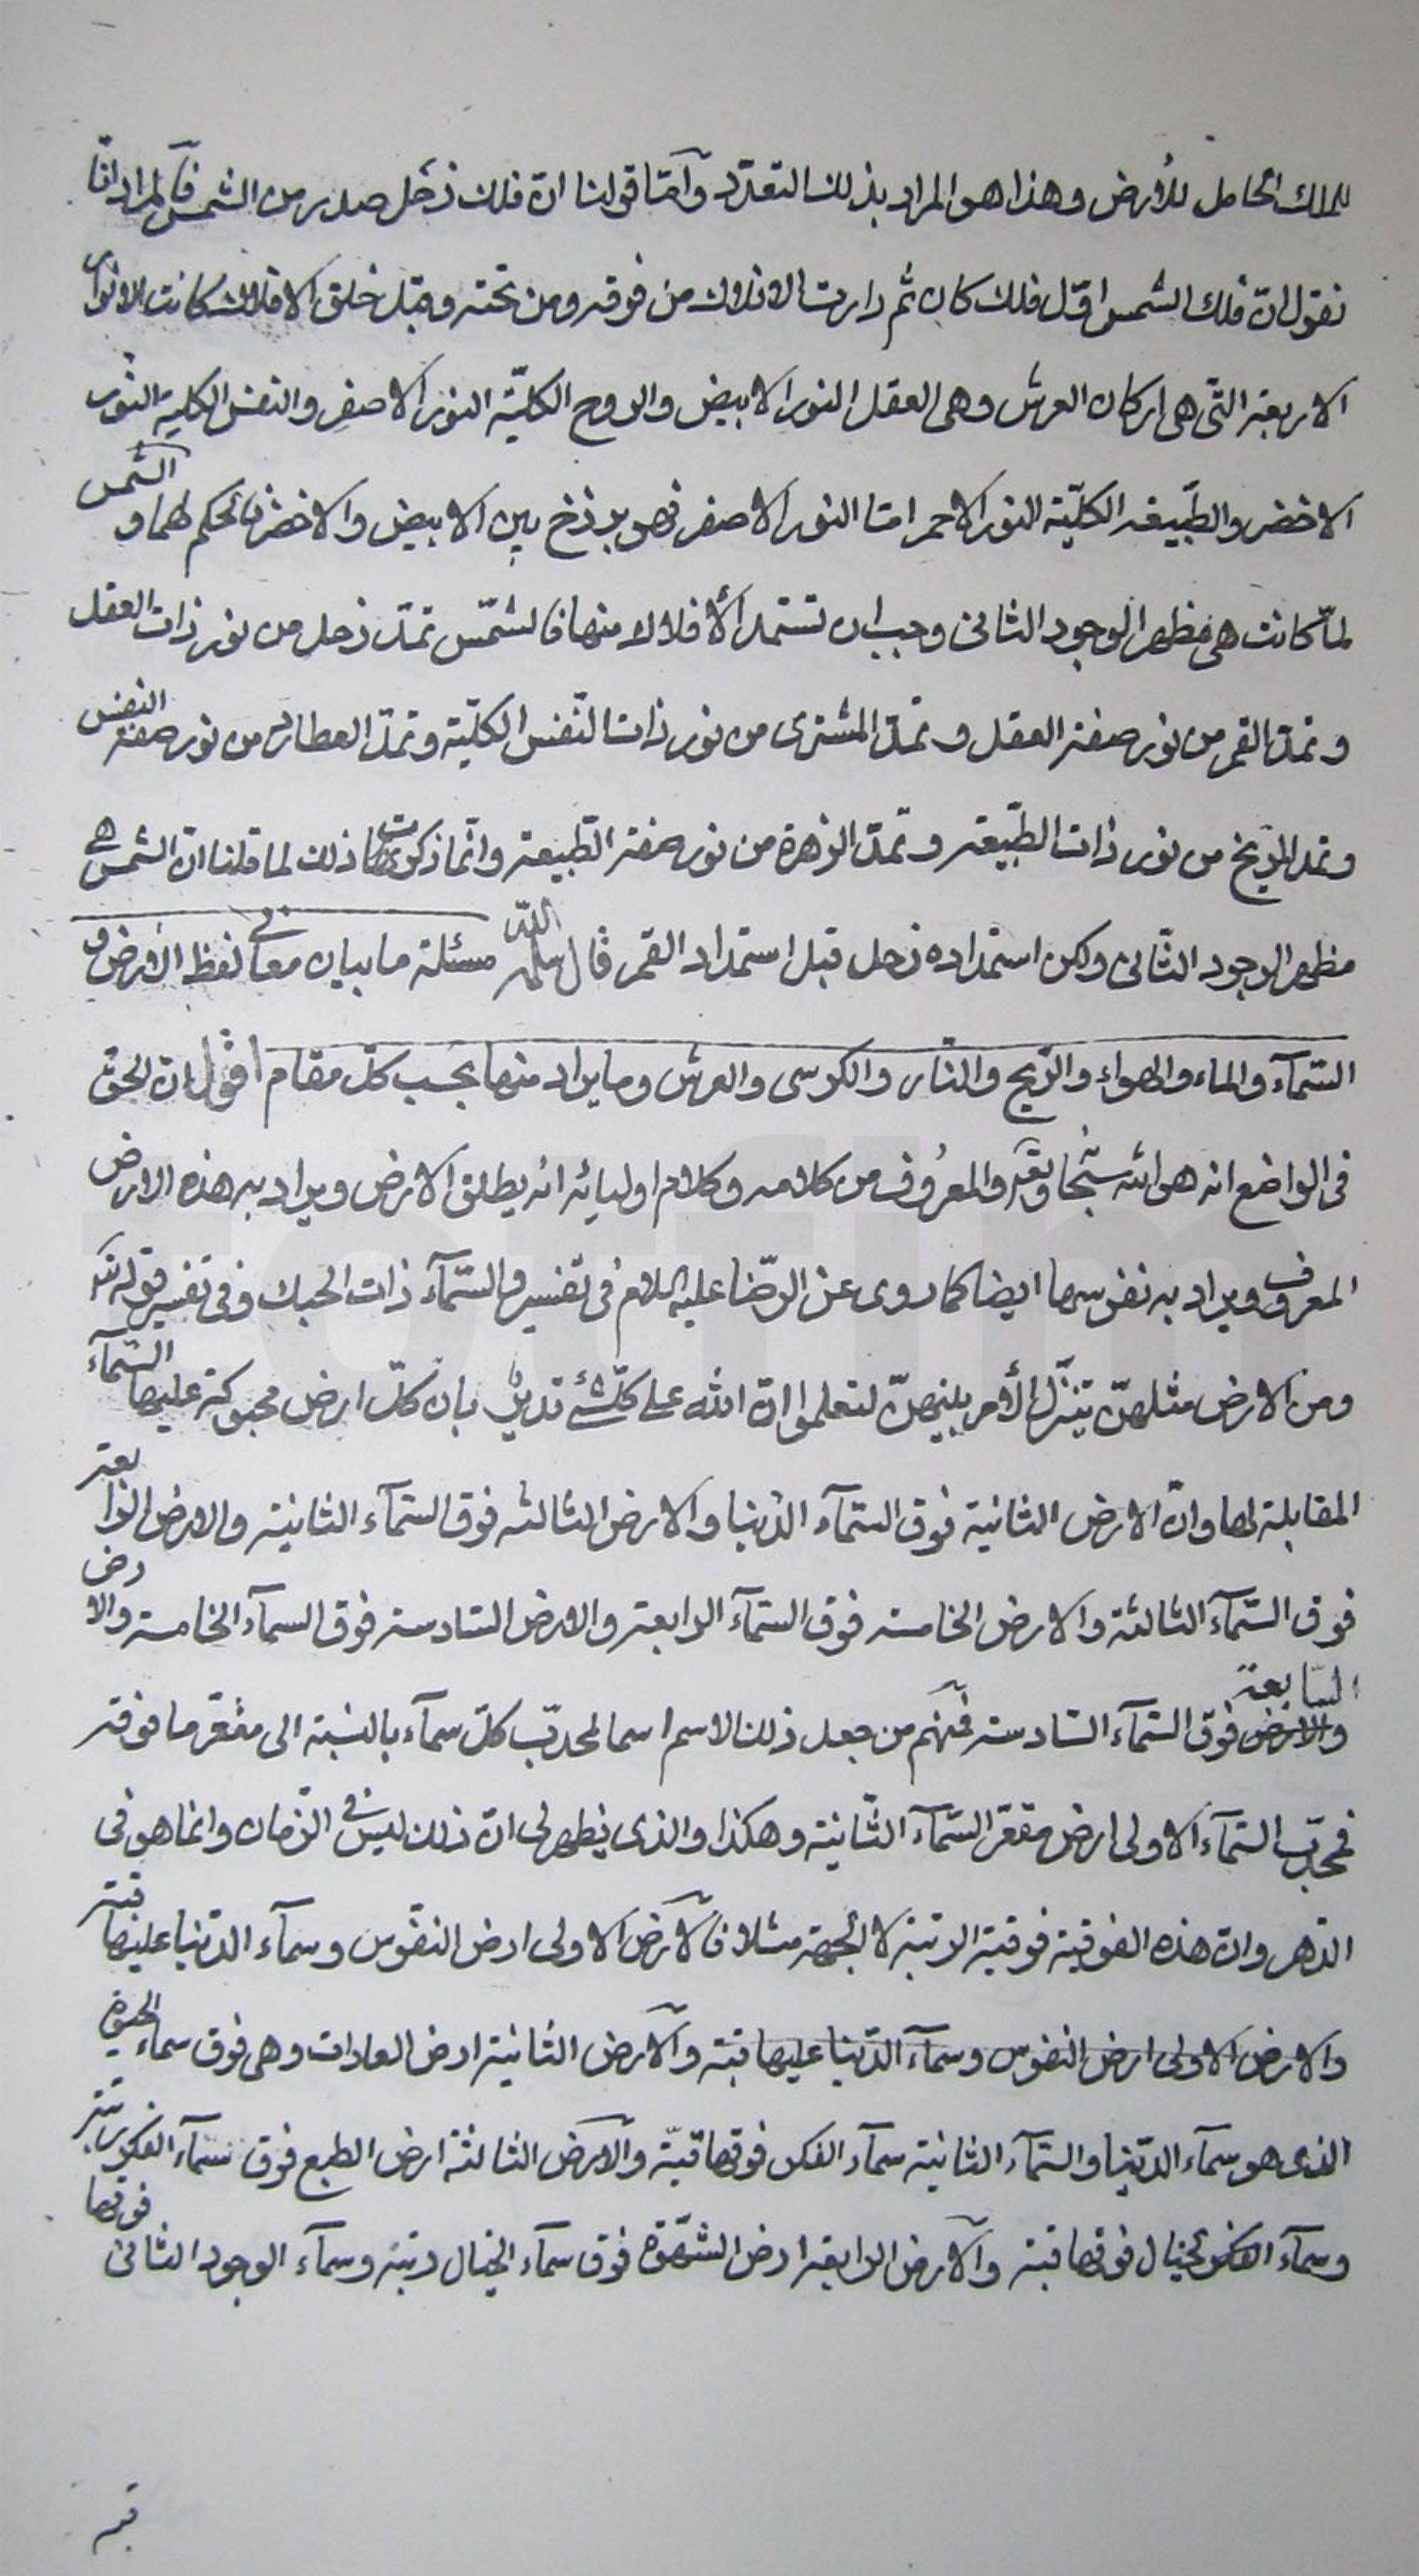 للملك الحامل للأرض وهذا هو المراد بذلك التعدّد وأمّا قولنا انّ فلك زحل صدر من الشمس فالمراد انّا
نقول انّ فلك الشمس اوّل فلك كان ثم دارت الافلاك من فوقه ومن تحته وقبل خلق الافلاك كانت الانوار
الاربعة التى هى اركان العرش وهى العقل النور الابيض والروح الكليّة النور الاصفر والنفس الكلية النور
الاخضر والطبيعة الكليّة النور الاحمر امّا النور الاصفر فهو برزخ بين الابيض والاخضر فالحكم لهما و الشمس
لمّا كانت هى مظهر الوجود الثانى وجب ان تستمد الأفلاك منها فالشمس تمدّ زحل من نور ذات العقل
و تمدّ القمر من نور صفة العقل و تمدّ المشترى من نور ذات النّفس الكليّة و تمدّ العطارد من نور صفة النفس
و تمد المريخ من نور ذات الطبيعة و تمدّ الزهرة من نور صفة الطبيعة وانّما ذكرت ذلك لما قلنا انّ الشمس هى
مظهر الوجود الثانى ولكن استمداده زحل قبل استمداد القمر قال سلمه الله مسئلة ما بيان معانى لفظ الأرض و
السّمآء والماء والهواء والرّيح والنّار والكرسى والعرش وما يراد منها بحسب كلّ مقام اقول ان الحق
فى الواضع انه هو الله سبحانه وتعالى والمعرُوف من كلامه وكلام اوليائه انه يطلق الارض ويراد به هذه الارض
المعروف ويراد به نفوسها ايضا كما روى عن الرّضا عليه السلام فى تفسير والسّمآء ذات الحبك وفى تفسير قوله تعالى
ومن الارض مثلهنّ يتنزّل الأمر بينهنّ لتعلموا انّ الله على كلّ شئ قدير بان كلّ ارض محبوكة عليها السّمآء
المقابلة لها وانّ الارض الثانية فوق السّمآء الدّنيا والارض الثالثه فوق السّمآء الثانية والارض الرابعة
فوق السّمآء الثالثة والارض الخامسة فوق السّمآء الرابعة والارض السّادسة فوق السمآء الخامسة والارض
السّابعة فوق السّمآء السّادسة فمنهم من جعل ذلك الاسم اسما لمحدّب كلّ سمآء بالنسبة الى مقعّر ما فوقه
فمحدّب السّمآء الاولى ارض مقعّر السّمآء الثّانية وهكذا والذى يظهر لى انّ ذلك ليس فى الزّمان وانما هو فى
الدّهر وانّ هذه الفوقية فوقيّة الرتبة لا الجهة مثلا فالارض الاولى ارض النفوس وسمآء الدّنيا عليها قبّة
والارض الاولى ارض النفوس وسمآء الدّنيا عليها قبّة والارض الثانية ارض العادات وهى فوق سماء الحيوة
الذى هو سمآء الدّنيا والسّمآء الثانية سمآء الفكر فوقها قبّة والارض الثالثة ارض الطبع فوق سمآء الفكر رتبة
وسمآء الخيال فوقها قبّة والارض الرابعة ارض الشّهوة فوق سمآء الخيال رتبة وسمآء الوجود الثانى فوقها
قبّة